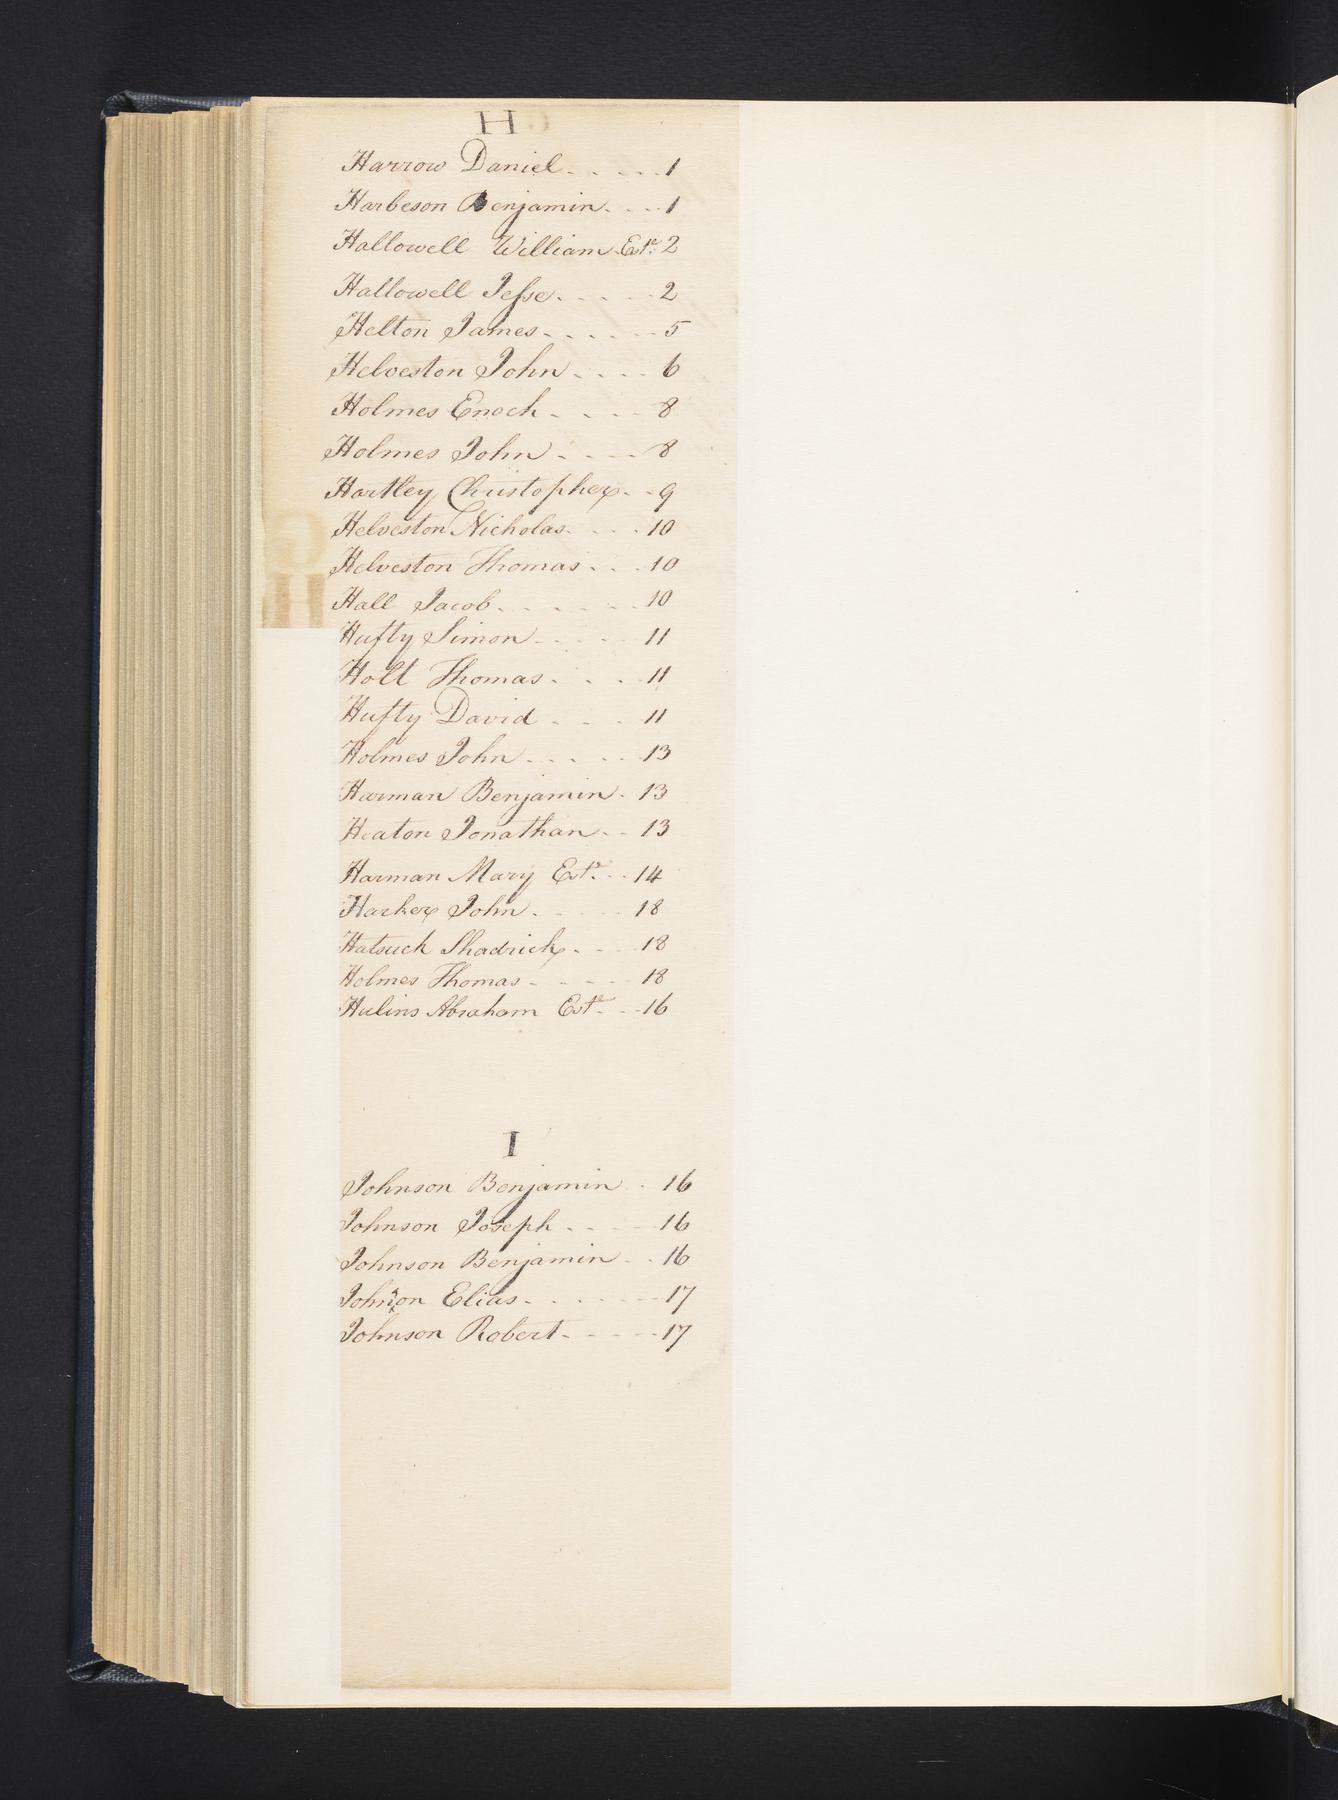 H
Harrow Daniel. . . . . . 1
Harbeson Benjamin. . . . 1
Hallowell William Este. 2
Hallowell Jesse. . . . . 2
Helton James. . . . . . 5
Helveston John. . . . . 6
Holmes Enoch. . . . . 8
Holmes John. . . . . 8
Hartley Christopher. . 9
Helveston Nicholas. . . . 10
Helveston Thomas. . . . 10
Hall Jacob. . . . . . . 10
Hufty Simon. . . . . 11
Holt Thomas. . . . 11
Hufty David . . . . 11
Holmes John. . . . . . 13
Harman Benjamin. 13
Heaton Jonathan. . . 13
Harman Mary Este. . . 14
Harker John. . . . . 18
Hatsuck Shadrick. . . . 18
Holmes Thomas. . . . . 18
Hulins Abraham Este. . . 16
I
Johnson Benjamin . . 16
Johnson Joseph. . . . . 16
Johnson Benjamin . . 16
Johnson Elias. . . . . . . 17
Johnson Robert. . . . . 17
G
H